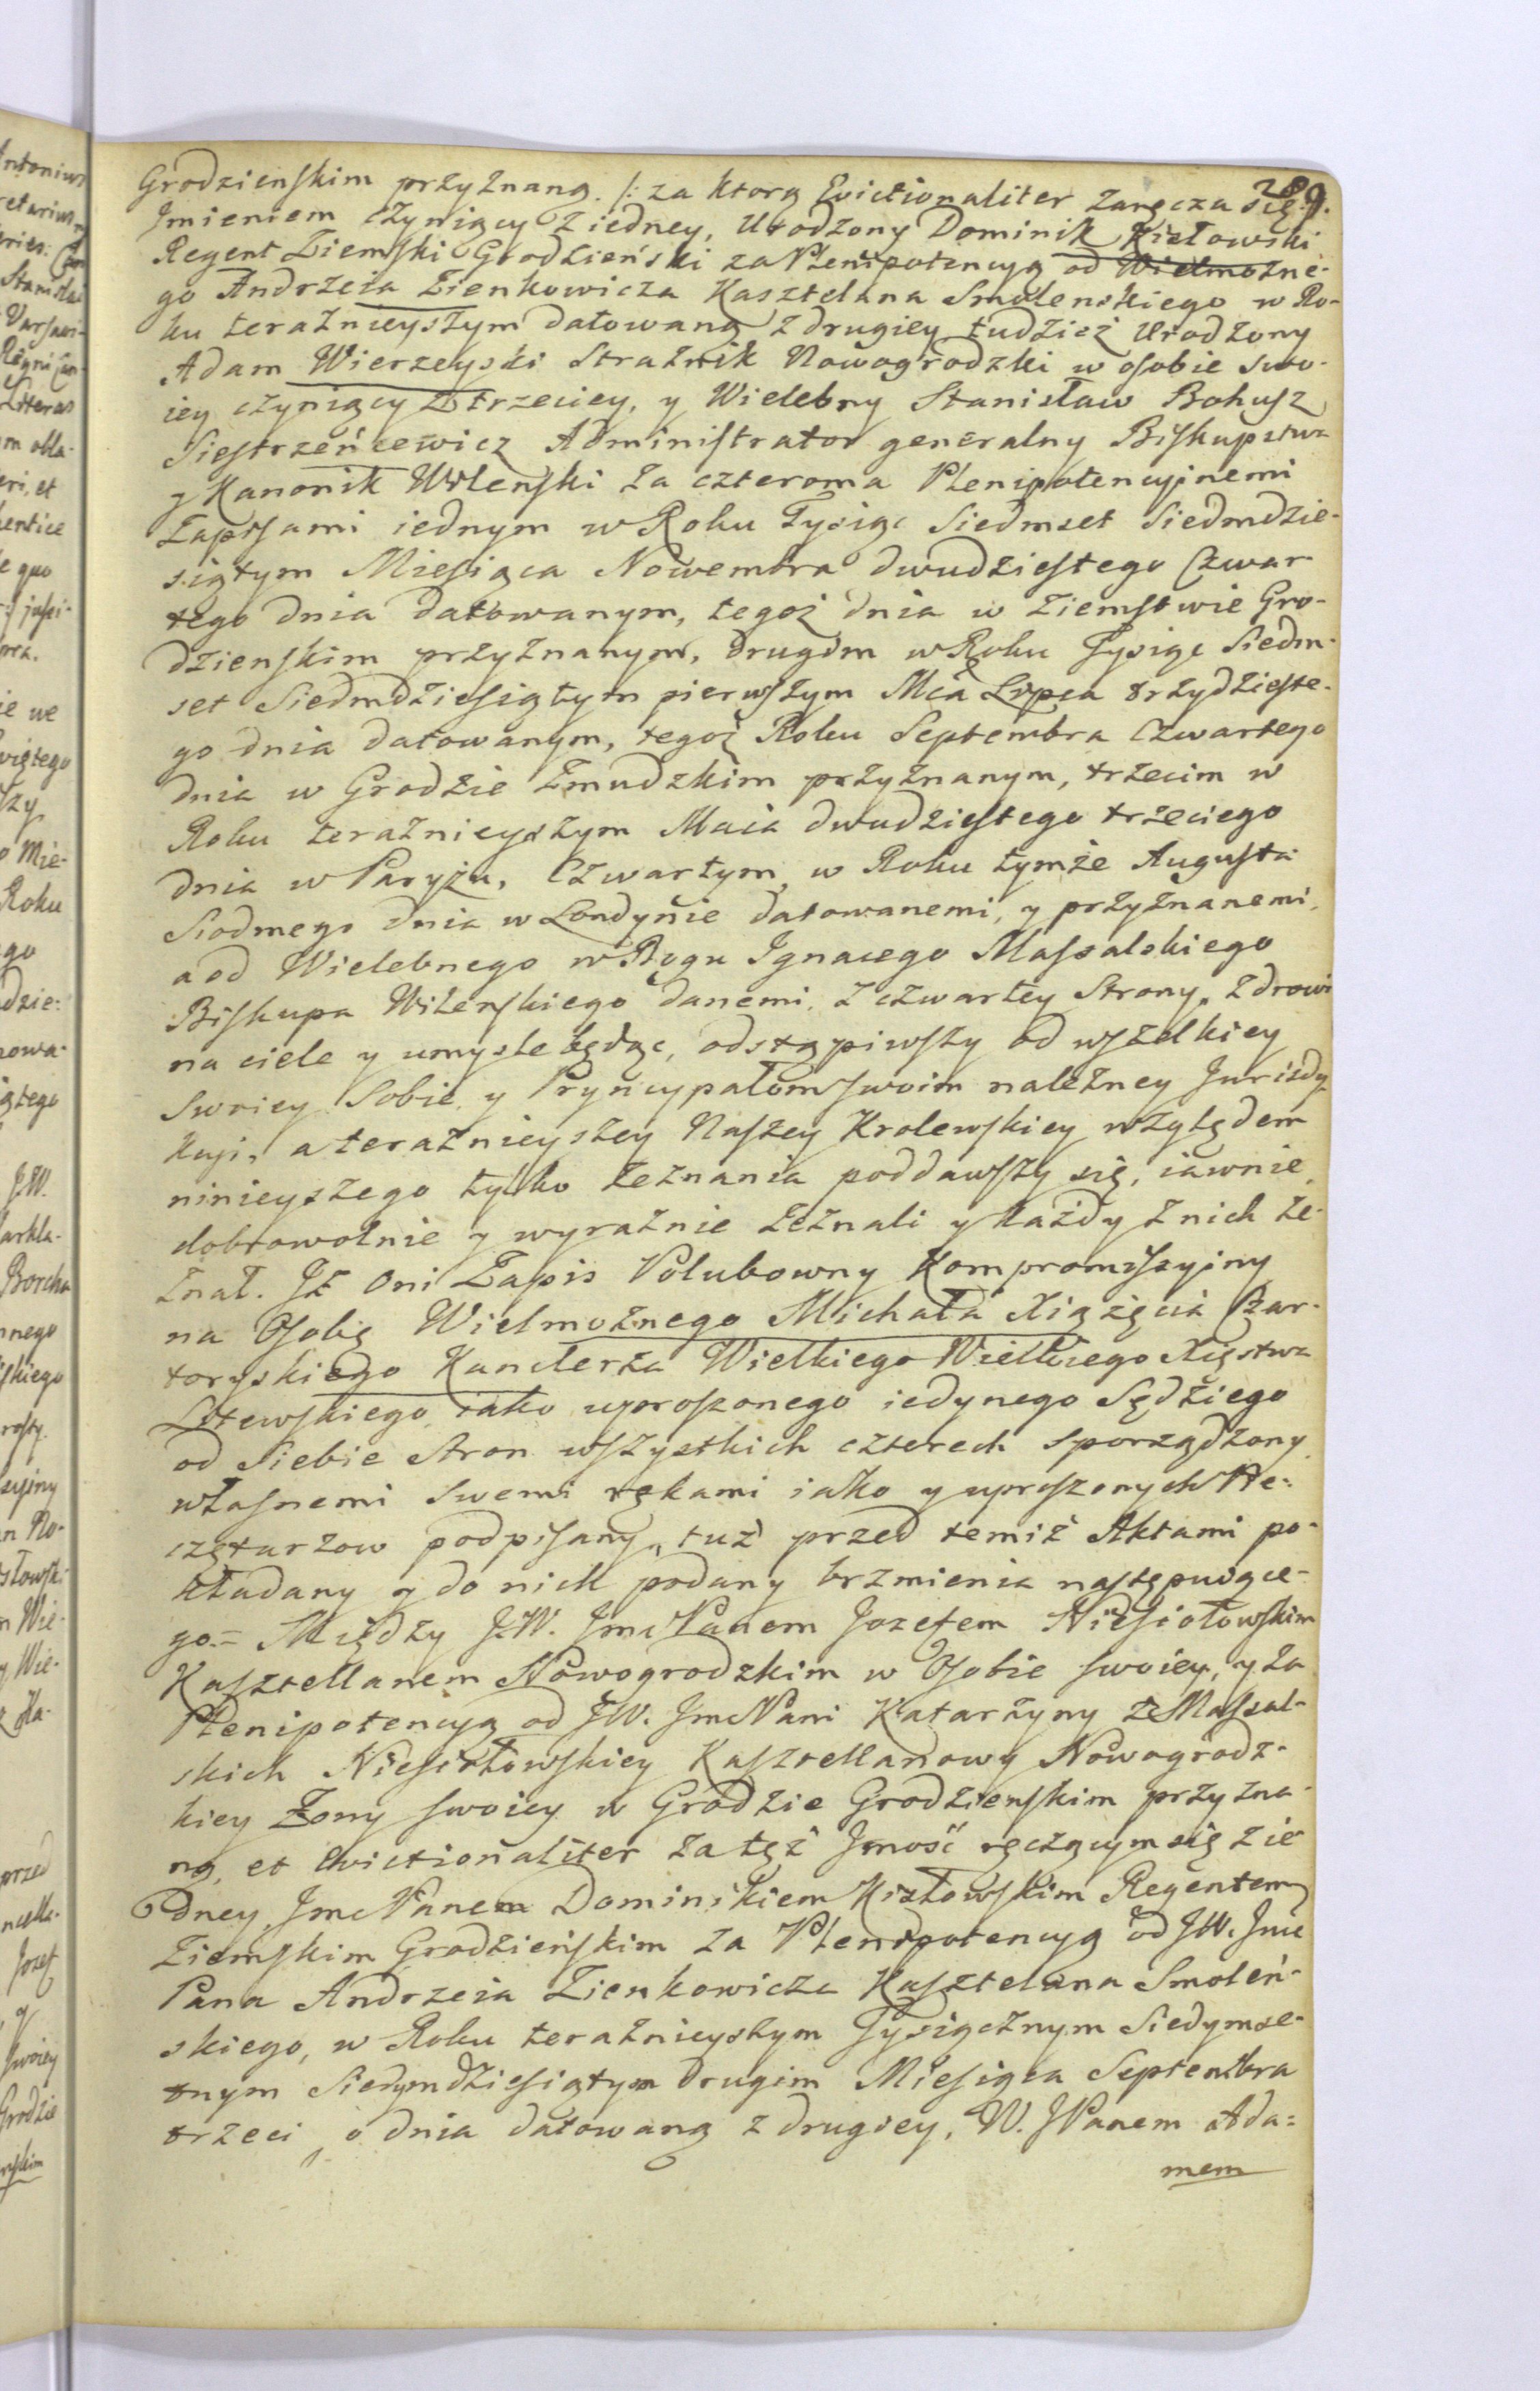 289.
Grodzienskim przyznaną. /: za ktorą Evictionaliter zaręcza się :/
Jmieniem czyniący z iedney, Urodzony Dominik Kiełowski
Regent Ziemski Grodzieński za Plenipotencyą od Wielmożne-
go Andrzeia Zienkowicza Kasztelana Smolenskiego w Ro-
ku teraźnieyszym datowaną z drugiey tudzież Urodzony
Adam Wierzeyski Strażnik Nowogrodzki w osobie swo-
iey czyniący z trzeciey, y Wielebny Stanisław Bohusz
Siestrzeńcewicz Administrator generalny Biskupstwa
y Kanonik Wilenski za czteroma Plenipotencyinemi
Zapisami iednym w Roku Tysiąc Siedmset Siedmdzie-
siątym Miesiąca Nowembra dwudziestego Czwar
tego dnia datowanym, tegoż dnia w Ziemstwie Gro-
dzienskim przyznanym, drugim w Roku Tysiąc Siedm-
set Siedmdziesiątym pierwszym Mca Lipca trzydzieste-
go dnia datowanym, tegoż Roku Septembra Czwartego
dnia w Grodzie Zmudzkim przyznanym, trzecim w
Roku teraznieyszym Maia dwudziestego trzeciego
dnia w Paryżu, Czwartym w Roku tymże Augusta
Siodmego dnia w Londynie datowanemi, y przyznanemi,
a od Wielebnego w Bogu Ignacego Massalskiego
Biskupa Wilenskiego danemi, z czwartey Strony, Zdrowi
na ciele y umysle będąc, odstąpiwszy od wszelkiey
swoiey Sobie y Pryncypałom swoim należney Jurizdy
kcyi, a teraznieyszey Naszey Krolewskiey względem
ninieyszego tylko zeznania poddawszy się, iawnie
dobrowolnie y wyraznie zeznali y każdy z nich ze-
znał. Jż oni Zapis Polubowny Kompromissyiny
na Osobę Wielmożnego Michała Xiążęcia Czar-
toryskiego Kanclerza Wielkiego Wielkiego Xięstwa
Litewskiego iako uproszonego iedynego Sędziego
od siebie stron wszystkich czterech sporządzony
własnemi swemi rękami iako y uproszonych Pie-
czętarzow podpisany, tuż przed temiż Aktami po-
kładany y do nich podany brzmienia następuiące-
go.= Między J.W. Jmc Panem Jozefem Niesiołowskim
Kasztellanem Nowogrodzkim w Osobie swoiey, y za
Plenipotencyą od J.W. Jmc Pani Katarzyny z Massal-
skich Niesiołowskiey Kasztellanowy Nowogrodz-
kiey Zony swoiey w Grodzie Grodzienskim przyzna-
ną, et evictionaliter za tęż Jmość ręczącym się z ie
dney, Jmc Panem Dominikiem Kiełowskim Regentem
Ziemskim Grodzieńskim za Plenipotencyą od J.W. Jmc
Pana Andrzeia Zienkowicza Kasztelana Smoleń-
skiego, w Roku teraznieyszym Tysiącznym Siedymse-
tnym Siedymdziesiątym drugim Miesiąca Septembra
trzeci o dnia datowaną z drugiey, W. JPanem Ada=
mem